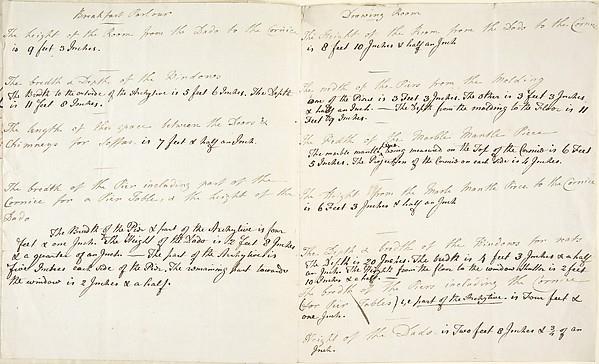 Breakfast Parlour
The height of the Room from the Dado to the Cornice
is 9 feet 3 Inches.
The bredth & Depth of the Windows
The Bredth to the outside of the Archytive is 5 feet 6 Inches. The Depth
is 11 feet 8 Inches.
The length of the space between the Doors &
Chimneys for Soffas. is 7 feet & half an Inch.
The breadth of the Pier including part of the
Cornice for a Pier Table, & the height of the
Dado
The Bredth of the Pier & part of the Archytive is four
feet & one Inch. The Height of the Dado is 2 feet 8 Inches
& a quarter of an Inch. — The part of the Archytive is
five Inches each side of the Pier. The remaining part towards
the window is 2 Inches & a half.
Drawing Room
The Height of the Room from the Dado to the Cornice
is 8 feet 10 Inches & half an Inch
The width of the Piers from the Molding
one of the Piers is 3 Feet 3 Inches. The other is 3 feet 3 Inches
& half an Inch — The Depth from the molding to the Floor is 11
Feet Inches.
The Bredth of the Marble Mantle Piece
The marble mantle piece being measured on the Top of the Cornice is 6 Feet
5 Inches. The Projection of the Cornice on each side is 4 Inches.
The Height from the Marble Mantle Piece to the Cornice
is 6 Feet 3 Inches & half an Inch
The Depth & bredth of the Windows for seats
The Depth is 20 Inches. The bredth is 4 feet 3 Inches & a half
an Inch. The Height from the floor to the window shutter is 2 feet
10 Inches & a half.
The breadth of the Piers including the Cornice
(for Pier Tables) i,e part of the Archytive. is Four feet &
one Inch.
Height of the Dado is Two feet 8 Inches & 3/4 of an
Inch.